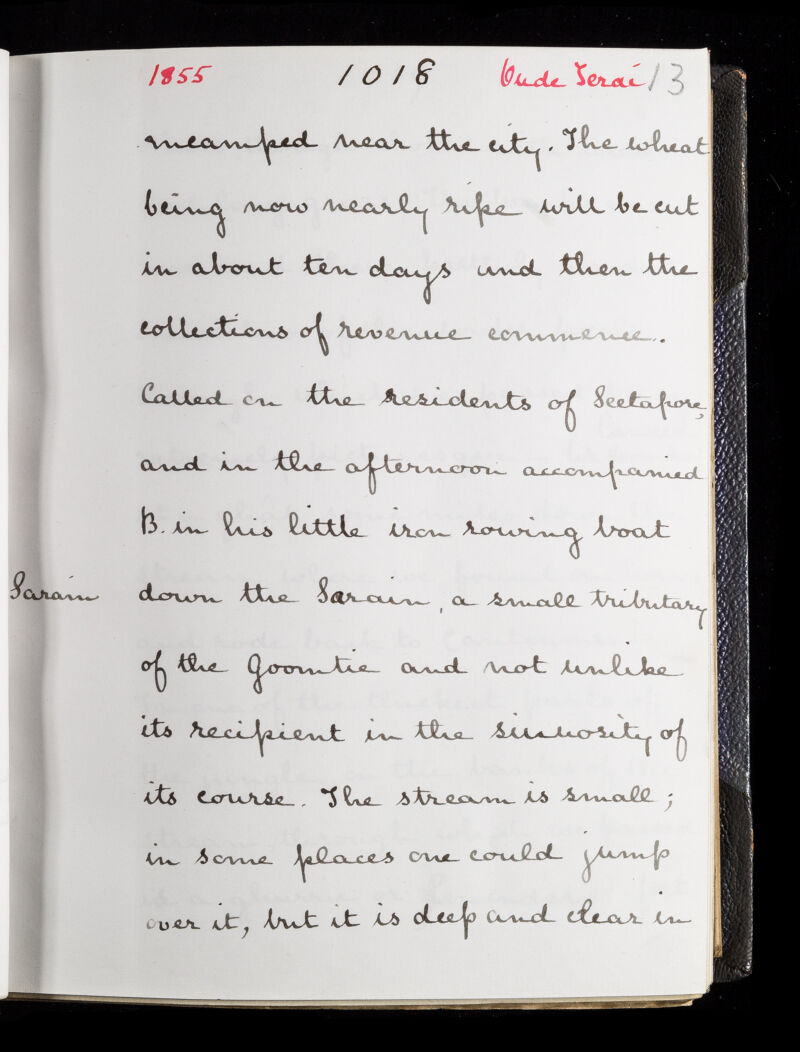 1855 1018 Oude Terai 13
encamped near the city. The wheat
being now nearly ripe will be cut
in about ten days and then the
collections of revenue commence.
Called on the residents of Seetapore,
and in the afternoon accompanied
B. in his little iron rowing boat
Sarain down the Sarain, a small tributary
of the Goomtie and not unlike
its recipient in the sinuosity of
its course. The stream is small ;
in some places one could jump
over it, but it is deep and clear in